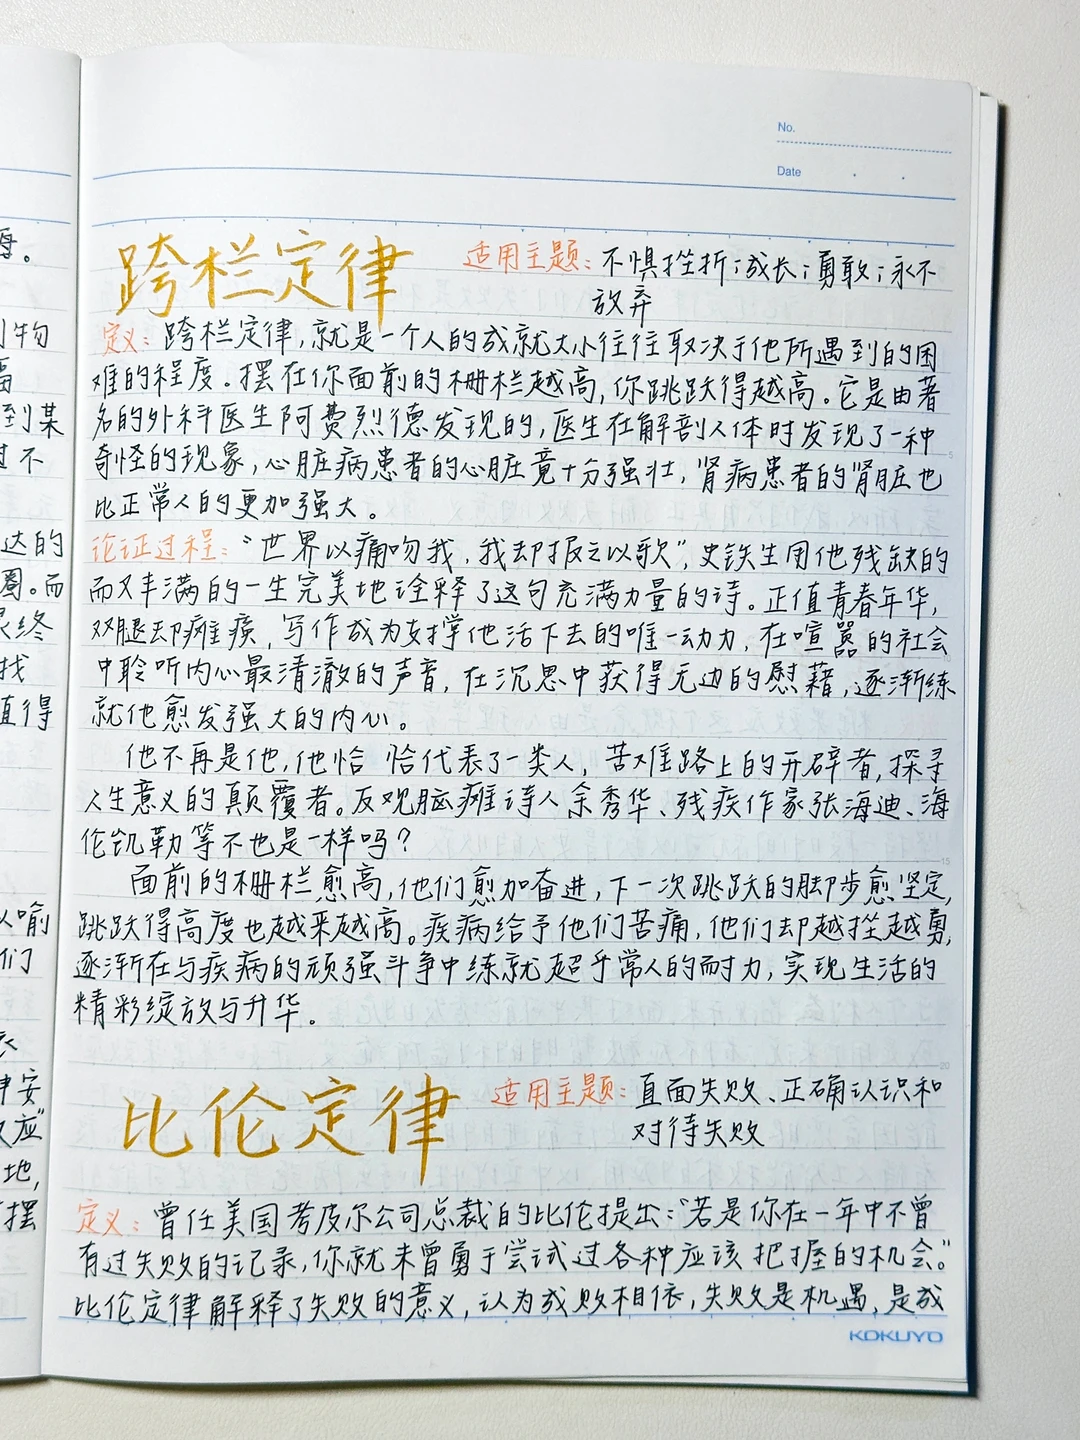 No.
Date
跨栏定律
适用主题：不惧挫折；成长；勇敢；永不
放弃
定义：跨栏定律，就是一个人的成就大小往往取决于他所遇到的困
难的程度。摆在你面前的栅栏越高，你跳跃得越高。它是由著
名的外科医生阿费烈德发现的，医生在解剖人体时发现了一种
奇怪的现象，心脏病患者的心脏竟十分强壮，肾病患者的肾脏也
比正常人的更加强大。
论证过程：“世界以痛吻我，我却报之以歌”，史铁生用他残缺的
而又丰满的一生完美地诠释了这句充满力量的诗。正值青春年华，
双腿却瘫痪，写作成为支撑他活下去的唯一动力，在喧嚣的社会
中聆听内心最清澈的声音，在沉思中获得无边的慰藉，逐渐练
就他愈发强大的内心。
他不再是他，他恰恰代表了一类人，苦难路上的开辟者，探寻
人生意义的颠覆者。反观脑瘫诗人余秀华、残疾作家张海迪、海
伦凯勒等不也是一样吗？
面前的栅栏愈高，他们愈加奋进，下一次跳跃的脚步愈坚定，
跳跃得高度也越来越高。疾病给予他们苦痛，他们却越挫越勇，
逐渐在与疾病的顽强斗争中练就超乎常人的耐力，实现生活的
精彩绽放与升华。
比伦定律
适用主题：直面失败、正确认识和
对待失败
定义：曾任美国考皮尔公司总裁的比伦提出：“若是你在一年中不曾
有过失败的记录，你就未曾勇于尝试过各种应该把握的机会。”
比伦定律解释了失败的意义，认为成败相依，失败是机遇，是成
KOKUYO